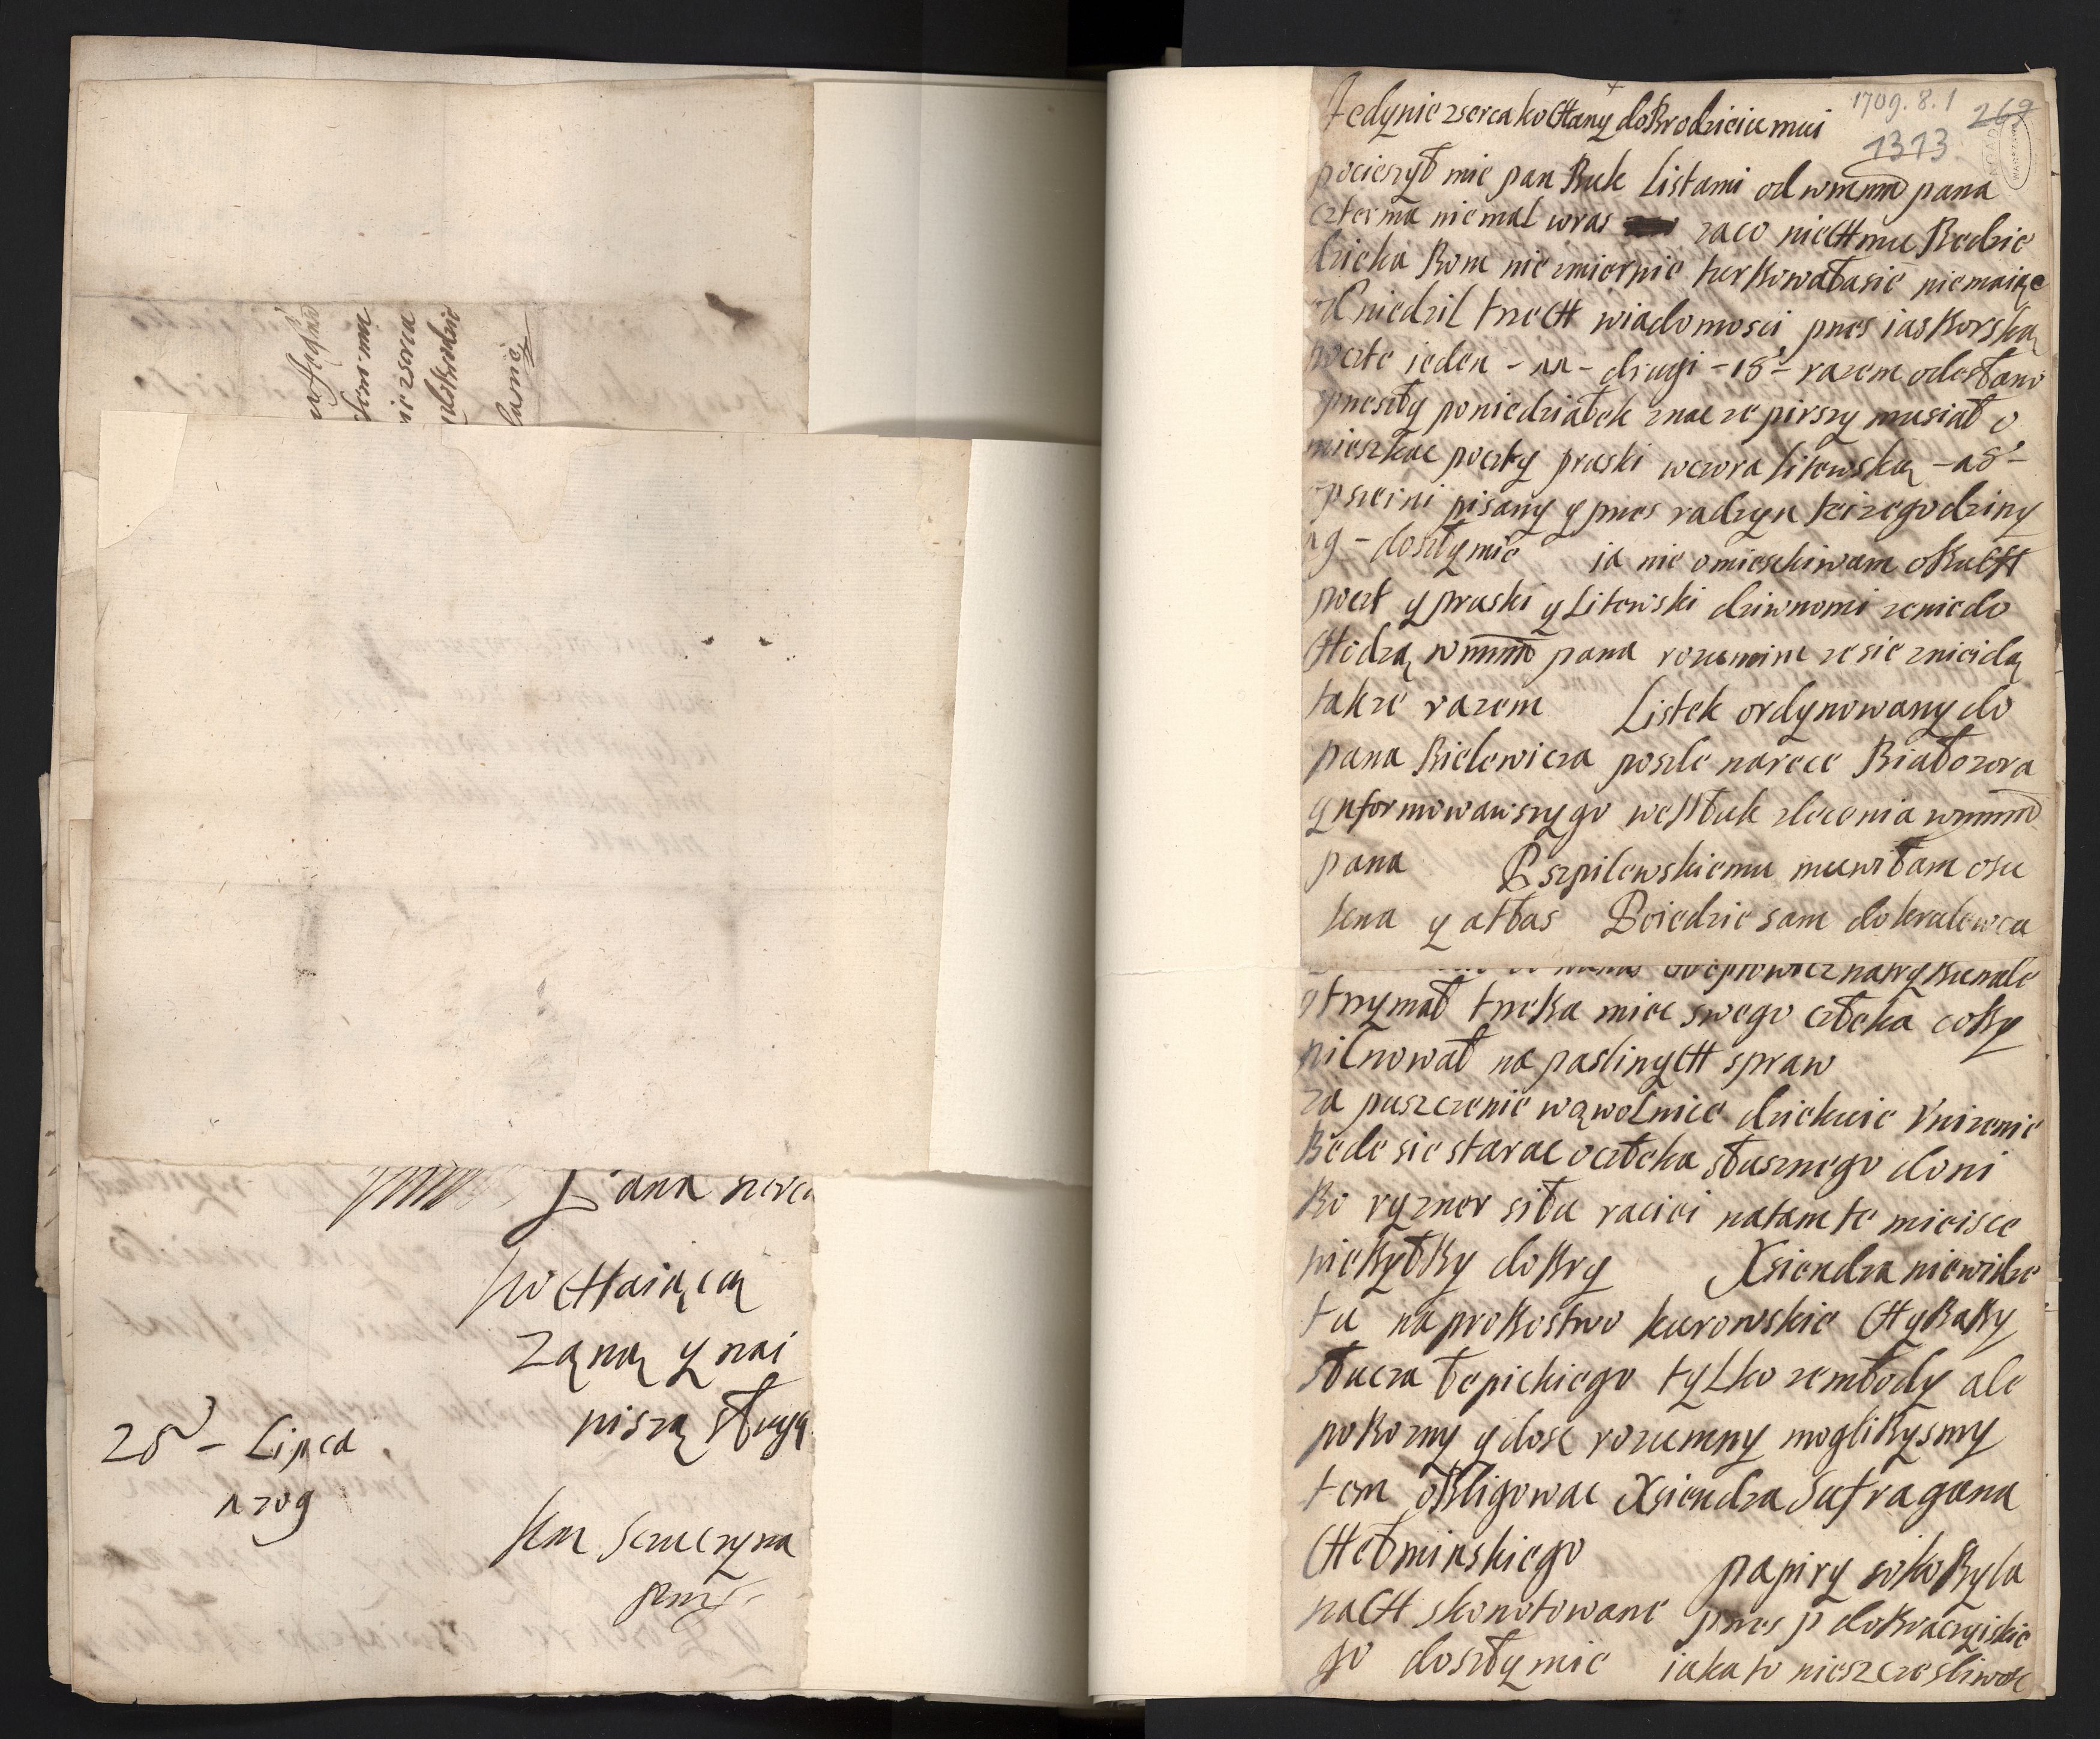 Pana serca
koChaiącą
Ząną y nai
nisza sługą
25 - Lipca
1709
Jedynie zserca koChany doBrodzieiu mui
1709.8.1
269
1313
pocieszył mie pan Buk Listami od wmmm pana
czterma niemal wras zaco nieChmu Bedzie
dzieka Bom nie zmiernie turBowałasie niemaiąc
od niedzil trzeCh wiadomosci przes iasBorską
poczte ieden - 11 - drugi - 18 - razem odesłano
przeszły poniedziałek znac ze pirszy musiał o
mieszkac poczty pruski wczora litewską - 18 -
pisany y przes radzyn teizegodziny
19 - doszły mie ia nie omieszkiwam oBuCh
poczt y pruski y Litewski dziwnomi zeniedo
Chodzą wmmm pana rozumim ze sie znieidą
takze razem Listek ordynowany do
pana Bielewicza poszle narece Białozora
ynformowawszy go westuk zlecenia wmmm
pana P szpilewskiemu muwiłam osu
kna y atłas Poiedzie sam do kralewca
ytrzymał trzeBa miec swego człeka coBy
pilnował na pasłinyCh spraw
za puszczenie wąwolnice dziekuie Vnizenie
Bede sie starac oczłeka słusznego doni
Bo ryzner siłu racici natamte mieisce
nieByłBy doBry Xsiendza niewidze
tu naproBostwo kurowskie ChyBaBy
słucza łepickiego tyLko zemłody ale
poBozny y dosc rozumny mogliBysmy
tem oBligowac Xsiendza Sufragana
Chełminskiego papiry wkoByla
naCh skonotowane przes p doBraczyiskie
go doszły mie iaka to nieszczesliwosc